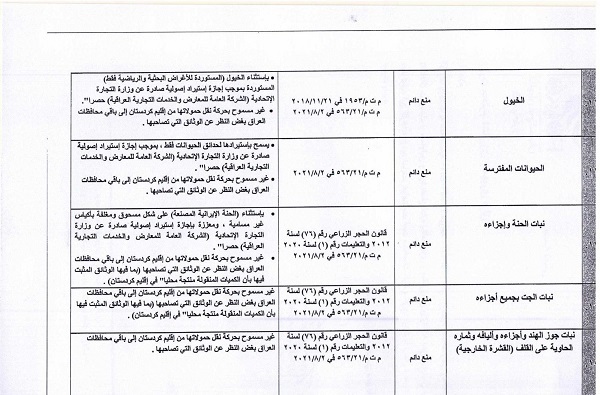 الخيول
منع دائم
م ت م/١٩٥٣ في ٢٠١٨/١١/٢١
م ت م/٥٦٣/٢١ في ٢٠٢١/٨/٢
• بإستثناء الخيول (المستوردة للأغراض البحثية والرياضية فقط)
المستوردة بموجب إجازة إستيراد إصولية صادرة عن وزارة التجارة
الإتحادية (الشركة العامة للمعارض والخدمات التجارية العراقية) حصرا".
• غير مسموح بحركة نقل حمولاتها من إقليم كردستان إلى باقي محافظات
العراق بغض النظر عن الوثائق التي تصاحبها .
الحيوانات المفترسة
منع دائم
م ت م/٥٦٣/٢١ في ٢٠٢١/٨/٢
• يسمح بإستيرادها لحدائق الحيوانات فقط ، بموجب إجازة إستيراد إصولية
صادرة عن وزارة التجارة الإتحادية (الشركة العامة للمعارض والخدمات
التجارية العراقية) حصرا".
• غير مسموح بحركة نقل حمولاتها من إقليم كردستان إلى باقي محافظات
العراق بغض النظر عن الوثائق التي تصاحبها .
نبات الحنة وإجزاءه
منع دائم
قانون الحجر الزراعي رقم (٧٦) لسنة
٢٠١٢ والتعليمات رقم (١) لسنة ٢٠٢٠
م ت م/٥٦٣/٢١ في ٢٠٢١/٨/٢
• بإستثناء (الحنة الإيرانية المصنعة) على شكل مسحوق ومغلفة بأكياس
غير مسامية ، ومعززة بإجازة إستيراد إصولية صادرة عن وزارة
التجارة الإتحادية (الشركة العامة للمعارض والخدمات التجارية
العراقية) حصرا".
• غير مسموح بحركة نقل حمولاتها من إقليم كردستان إلى باقي محافظات
العراق بغض النظر عن الوثائق التي تصاحبها (بما فيها الوثائق المثبت
فيها بأن الكميات المنقولة منتجة محليا" في إقليم كردستان) .
نبات الجت بجميع أجزاءه
منع دائم
قانون الحجر الزراعي رقم (٧٦) لسنة
٢٠١٢ والتعليمات رقم (١) لسنة ٢٠٢٠
م ت م/٥٦٣/٢١ في ٢٠٢١/٨/٢
غير مسموح بحركة نقل حمولاتها من إقليم كردستان إلى باقي محافظات
العراق بغض النظر عن الوثائق التي تصاحبها (بما فيها الوثائق المثبت فيها
بأن الكميات المنقولة منتجة محليا" في إقليم كردستان) .
نبات جوز الهند وأجزاءه وأليافه وثماره
الحاوية على القلف (القشرة الخارجية)
منع دائم
قانون الحجر الزراعي رقم (٧٦) لسنة
٢٠١٢ والتعليمات رقم (١) لسنة ٢٠٢٠
م ت م/٥٦٣/٢١ في ٢٠٢١/٨/٢
غير مسموح بحركة نقل حمولاتها من إقليم كردستان إلى باقي محافظات
العراق بغض النظر عن الوثائق التي تصاحبها .